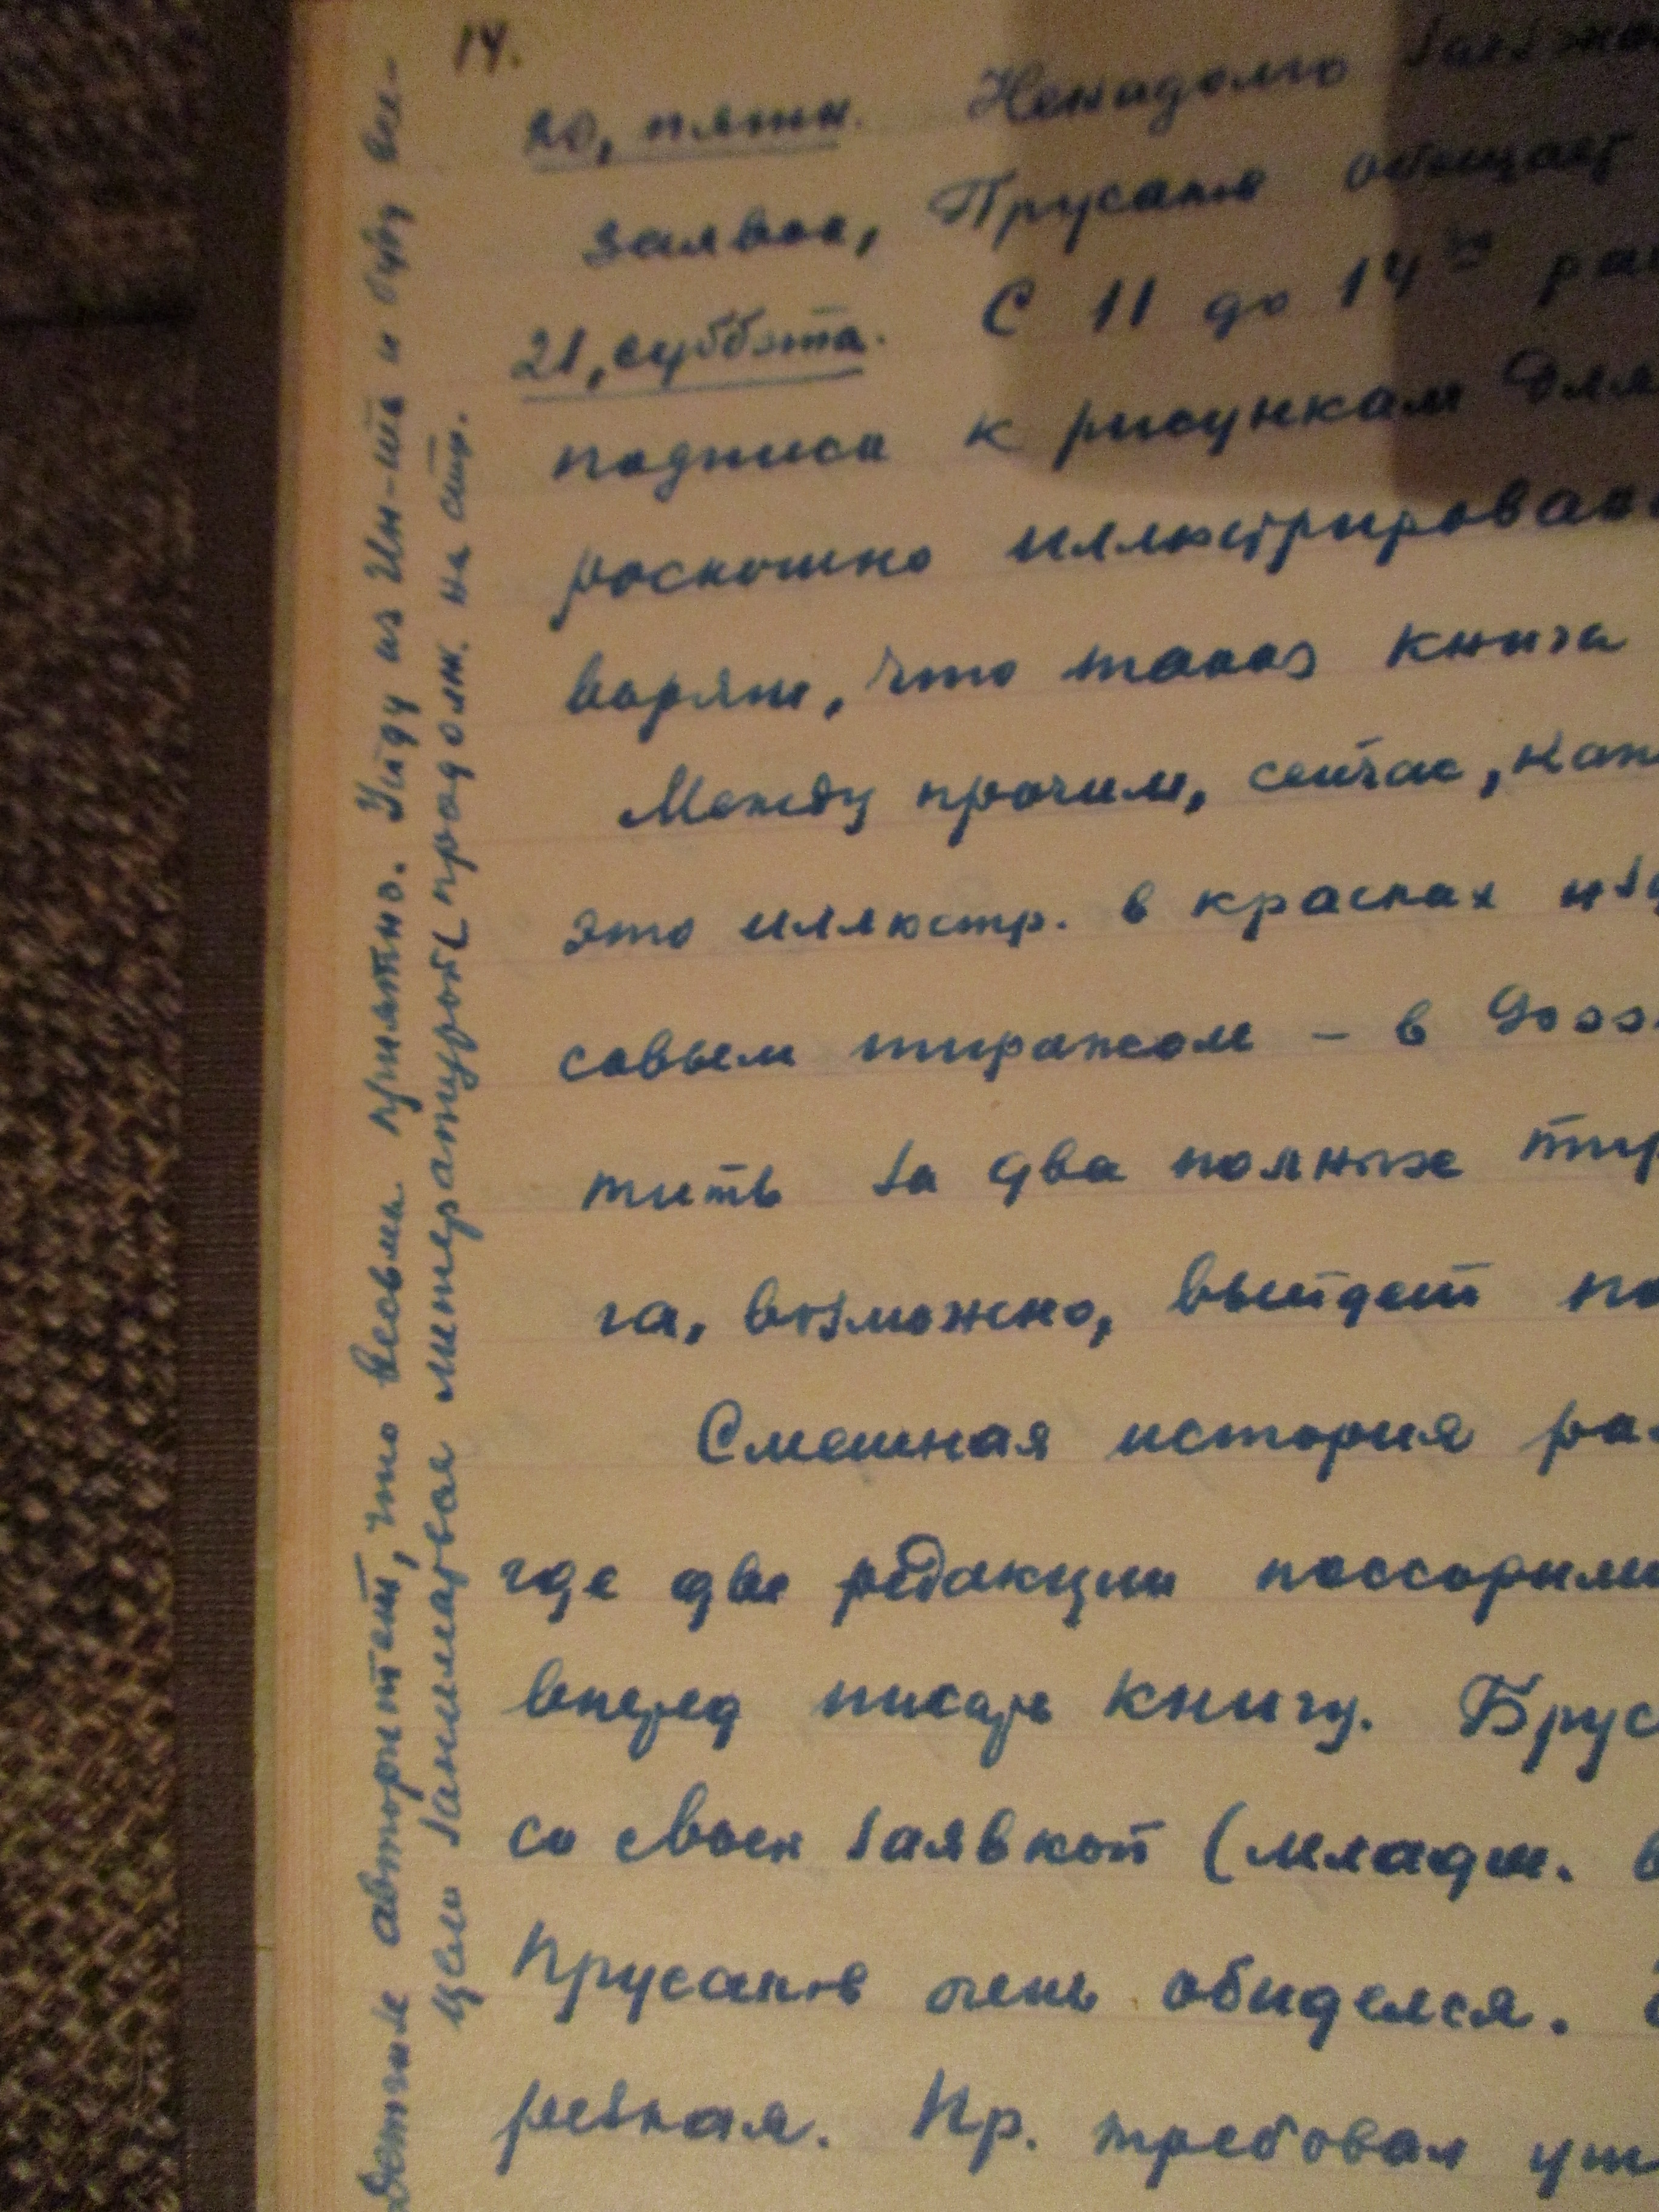 14.
20, пятн. Ненадолго заезжа
заявке, Прусаков обещает
21, суббота. С 11 до 14
подписи к рисункам для
роскошно иллюстрирован
ворят, что такая книга
Между прочим, сейчас, как
это иллюстр. в красках изд
совым тиражом – в
тить за два полных тир
га, возможно, выйдет по
Смешная история ра
где две редакции поссорили
вперед писать книгу. Брус
со своей заявкой (младш. в
Прусаков очень обиделся.
резная. Пр. требовал ут
Детгизе авторитет, что весьма приятно. Уйду из Ин-та и буду все-
цело заниматься литературой [продолж. на стр.